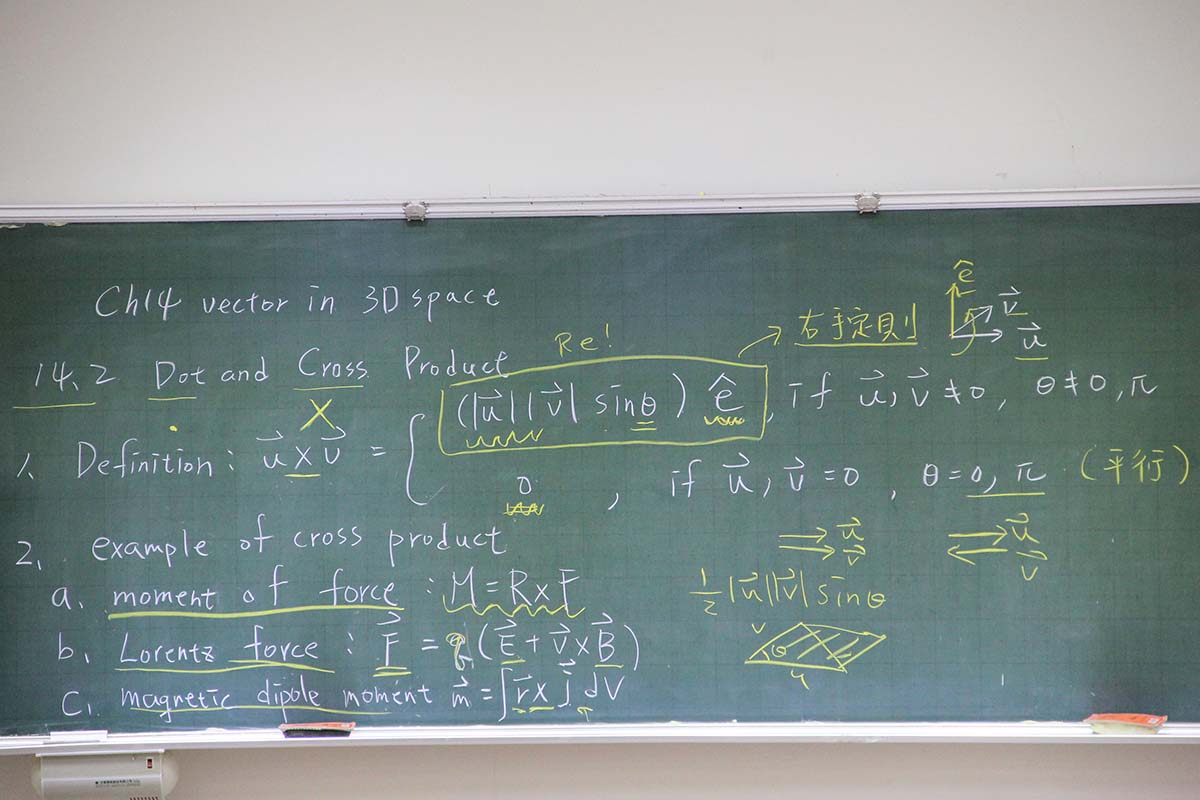 Ch14 vector in 3D space
14.2 Dot and Cross Product
Re!
右手定則
ê
v⃗
u⃗
1. Definition: u⃗ × v⃗ = { (|u⃗||v⃗| sinθ) ê, if u⃗, v⃗ ≠ 0, θ ≠ 0, π
0, if u⃗, v⃗ = 0, θ = 0, π (平行)
u⃗
v⃗
u⃗
v⃗
2. example of cross product
a. moment of force : M = R × F
½|u⃗||v⃗| sinθ
v θ
u
b. Lorentz force : F⃗ = q (E⃗ + v⃗ × B⃗)
c. magnetic dipole moment m⃗ = ∫ r⃗ × j⃗ dV